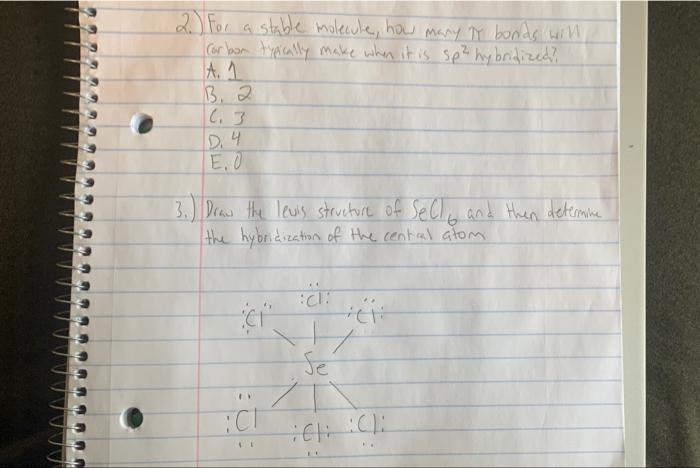 2.) For a stable molecule, how many π bonds will
carbon typically make when it is sp² hybridized?
A. 1
B. 2
C. 3
D. 4
E. 0
3.) Draw the lewis structure of SeCl₆ and then determine
the hybridization of the central atom
:Cl: :Cl: :Cl:
Se
:Cl :Cl: :Cl: